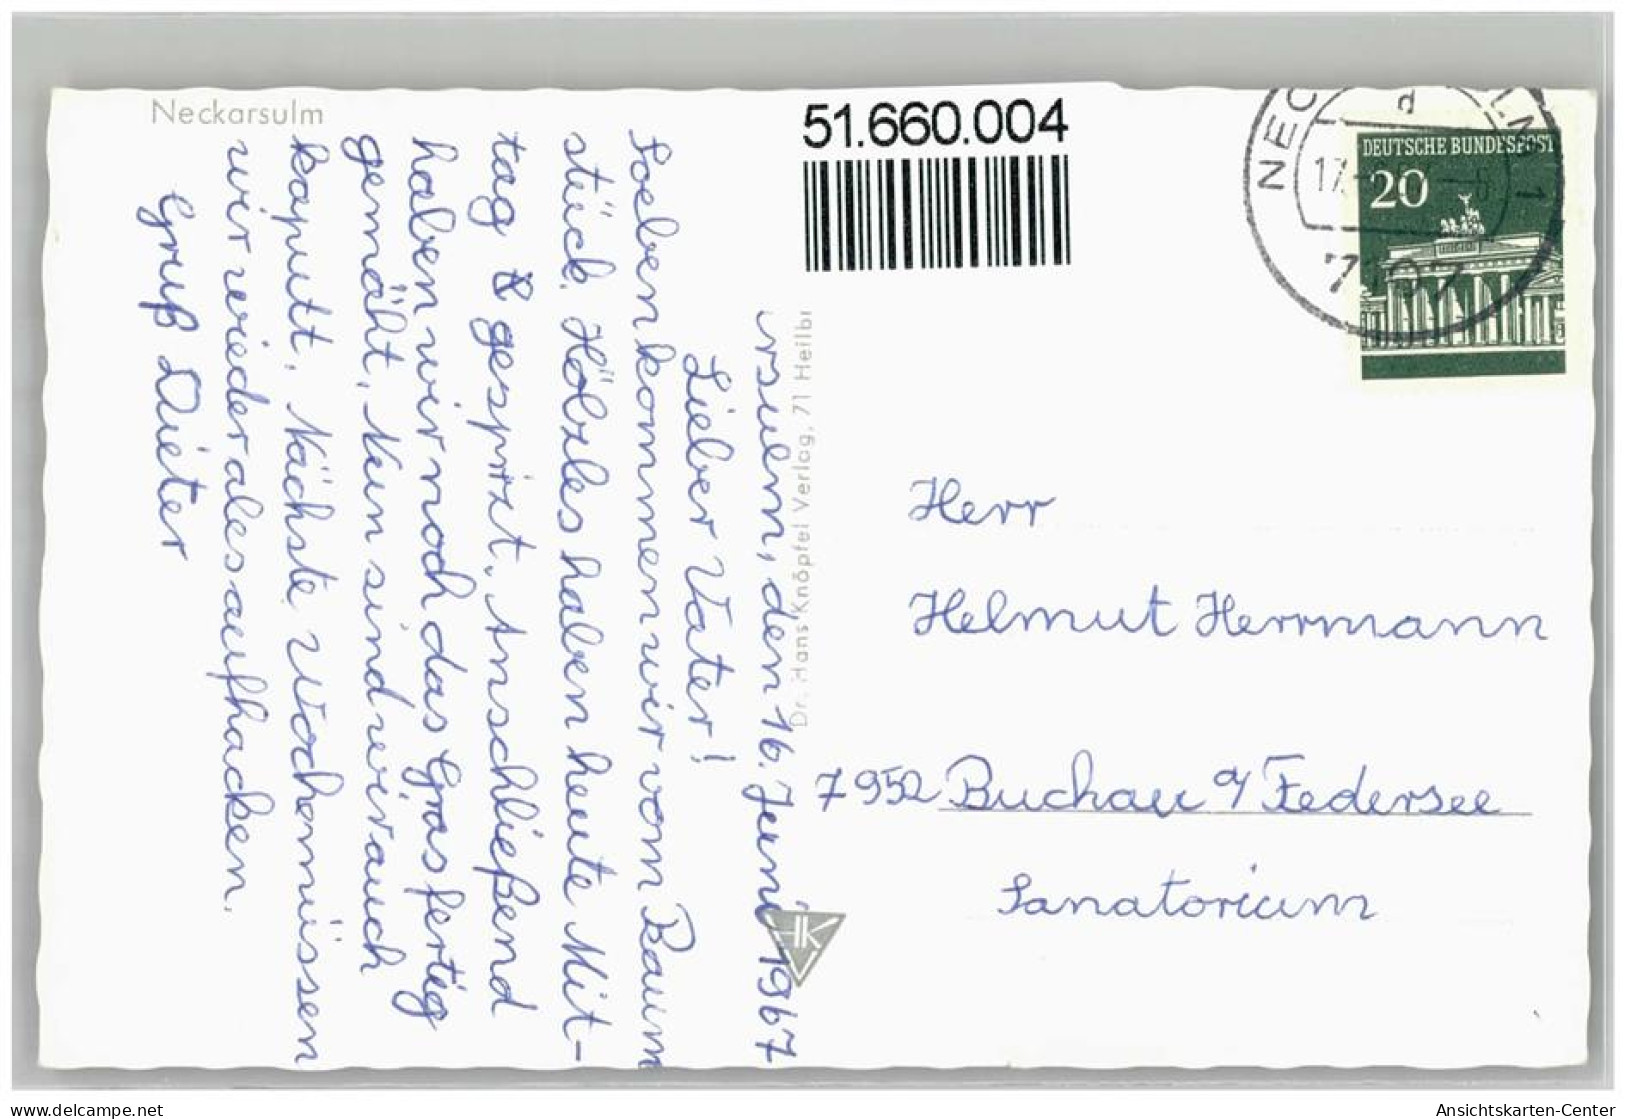 Neckarsulm
51.660.004
DEUTSCHE BUNDESPOST
20
17.
7107
d
Dr. Hans Knöpfel Verlag, 71 Heilb
HK
rsulm, den 16. Juni 1967
Lieber Vater!
Soeben kommen wir vom Baum
stück. Hölzles haben heute Mit-
tag gespritzt. Anschließend
haben wir noch das Gras fertig
gemäht. Nun sind wir auch
kaputt. Nächste Woche müssen
wir wieder ales aufhacken.
Gruß Dieter
Herr
Helmut Herrmann
7952 Buchau a/ Federsee
Sanatorium
www.delcampe.net
Ansichtskarten-Center